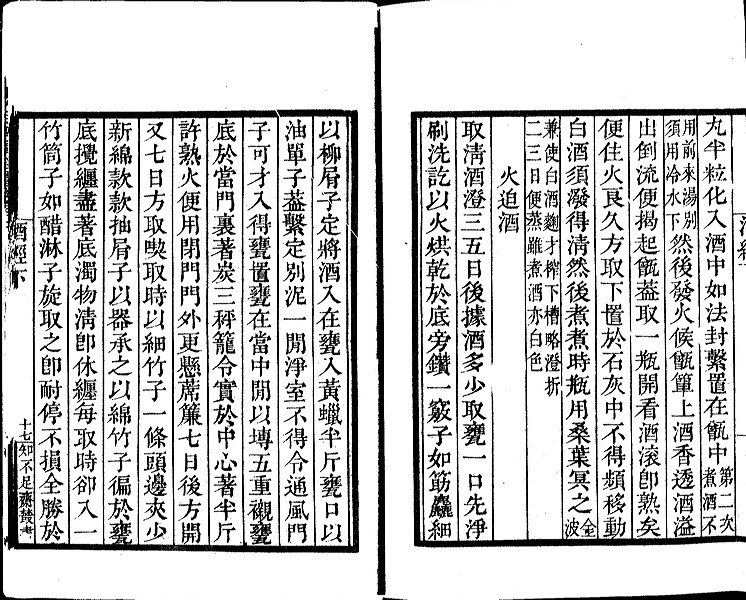 丸半粒化入酒中如法封繫置在甑中第二次煮酒不
用前來湯別須用冷水下然後發火候甑簞上酒香透酒溢
出倒流便揭起甑蓋取一瓶開看酒滾卽熟矣
便住火良久方取下置於石灰中不得頻移動
白酒須潑得清然後煮煮時瓶用桑葉冥之金波
兼使白酒麴才榨下槽略澄折二三日便蒸雖煮酒亦白色
火迫酒
取清酒澄三五日後據酒多少取甕一口先淨
刷洗訖以火烘乾於底旁鑽一竅子如筯麤細
以柳屑子定將酒入在甕入黃蠟半斤甕口以
油單子蓋繫定別泥一閒淨室不得令通風門
子可才入得甕置甕在當中閒以塼五重襯甕
底於當門裏著炭三秤籠令實於中心著半斤
許熟火便用閉門門外更懸蓆簾七日後方開
又七日方取喫取時以細竹子一條頭邊夾少
新綿款款抽屑子以器承之以綿竹子徧於甕
底攪纏盡著底濁物清卽休纏每取時卻入一
竹筒子如醋淋子旋取之卽耐停不損全勝於
酒經下
十七
知不足齋叢書